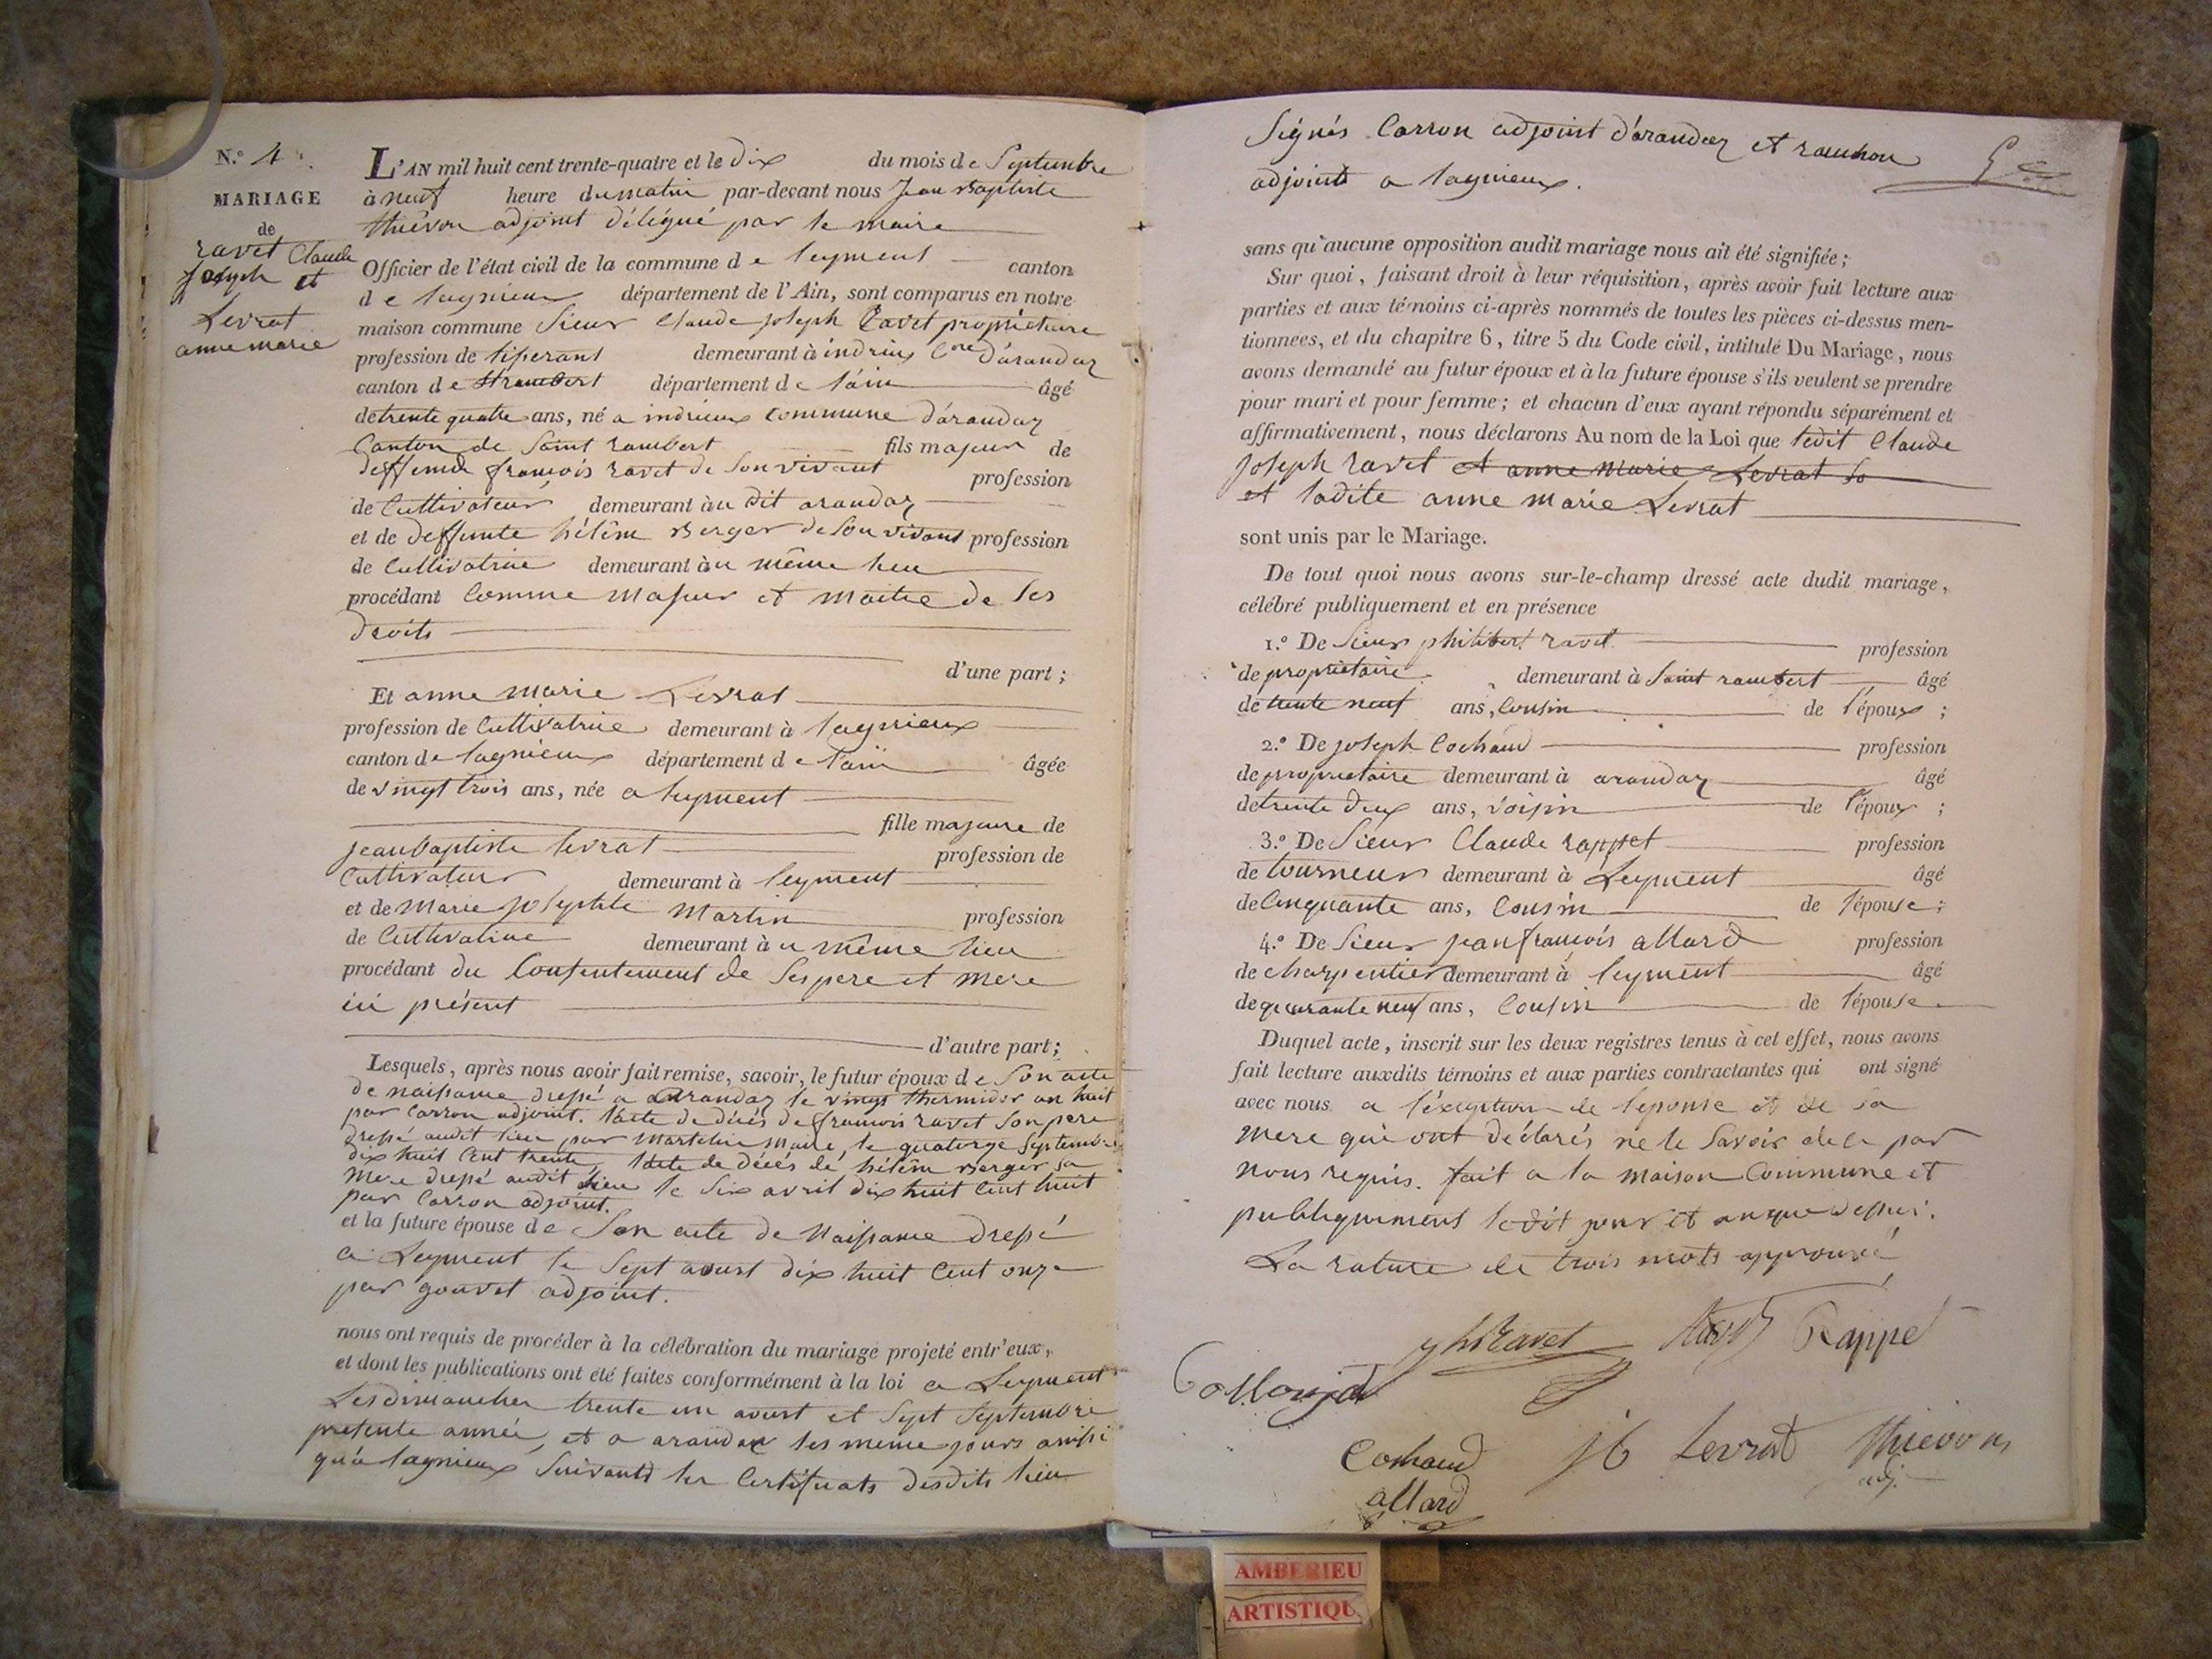 N.° 4
MARIAGE
de
ravet Claude
Joseph et
Levrat
anne marie
L'AN mil huit cent trente-quatre et le dix du mois de Septembre
à neuf heure du matin par-devant nous Jean Baptiste
thiévon adjoint délégué par le maire
Officier de l'état civil de la commune de leyment canton
de lagnieux département de l'Ain, sont comparus en notre
maison commune Sieur Claude joseph Ravet propriétaire
profession de tiserant demeurant à indrieux Cne d'arandaz
canton de St rambert département de l'ain âgé
de trente quatre ans, né a indrieux commune d'arandaz
Canton de Saint rambert fils majeur de
deffunde françois ravet de Son vivant profession
de Cultivateur demeurant au dit arandaz
et de deffunte hélène Berger de Son vivant profession
de Cultivatrice demeurant au même lieu
procédant Comme Majeur et Maitre de Ses
droits
d'une part ;
Et anne Marie Levrat
profession de Cultivatrice demeurant à lagnieux
canton de lagnieux département de l'ain âgée
de vingt trois ans, née a leyment
fille majeure de
jean baptiste levrat profession de
Cultivateur demeurant à leyment
et de Marie josephte Martin profession
de Cultivatrice demeurant au même lieu
procédant du Consentement de Ses pere et Mere
ici présent
d'autre part ;
Lesquels, après nous avoir fait remise, savoir, le futur époux de Son acte
de naissance dressé a arandaz le vingt thermidor an huit
par Carron adjoint. l'acte de décès de françois ravet Son pere
dressé audit lieu par Martelin Maire, le quatorze Septembre
dix huit Cent trente, l'acte de décès de hélène Berger sa
Mere dressé audit lieu le Six avril dix huit Cent huit
par Carron adjoint.
et la future épouse de Son acte de Naissance dressé
a Leyment le Sept aoust dix huit Cent onze
par gouvet adjoint.
nous ont requis de procéder à la célébration du mariage projeté entr'eux,
et dont les publications ont été faites conformément à la loi a Leyment
Les dimanches trente un aoust et Sept Septembre
presente année, et a arandaz les meme jours ainsi
qu'a lagnieux Suivants les Certificats desdits lieu
Signés Carron adjoint d'arandaz et
adjoints a lagnieux.
sans qu'aucune opposition audit mariage nous ait été signifiée ;
Sur quoi, faisant droit à leur réquisition, après avoir fait lecture aux
parties et aux témoins ci-après nommés de toutes les pièces ci-dessus men-
tionnées, et du chapitre 6, titre 5 du Code civil, intitulé Du Mariage, nous
avons demandé au futur époux et à la future épouse s'ils veulent se prendre
pour mari et pour femme ; et chacun d'eux ayant répondu séparément et
affirmativement, nous déclarons Au nom de la Loi que ledit Claude
Joseph ravet et anne Marie Levrat So
et ladite anne Marie Levrat
sont unis par le Mariage.
De tout quoi nous avons sur-le-champ dressé acte dudit mariage,
célébré publiquement et en présence
1.° De Sieur philibert ravet profession
de propriétaire demeurant à Saint rambert âgé
de trente neuf ans, Cousin de l'époux ;
2.° De joseph Cochaud profession
de propriétaire demeurant à arandaz âgé
de trente deux ans, voisin de l'époux ;
3.° De Sieur Claude rappet profession
de tourneur demeurant à Leyment âgé
de Cinquante ans, Cousin de l'épouse ;
4.° De Sieur jean françois allard profession
de charpentier demeurant à leyment âgé
de quarante neuf ans, Cousin de l'épouse
Duquel acte, inscrit sur les deux registres tenus à cet effet, nous avons
fait lecture auxdits témoins et aux parties contractantes qui ont signé
avec nous a l'exeption de l'epouse et de sa
Mere qui ont déclarés ne le Savoir de ce par
nous requis. fait a la maison Commune et
publiquement ledit jour et an que dessus.
La rature de trois mots approuvé
phi Ravet Ravet Rappet
Cochaud J b Levrat thievon
allard adj.
AMBERIEU
ARTISTIQU